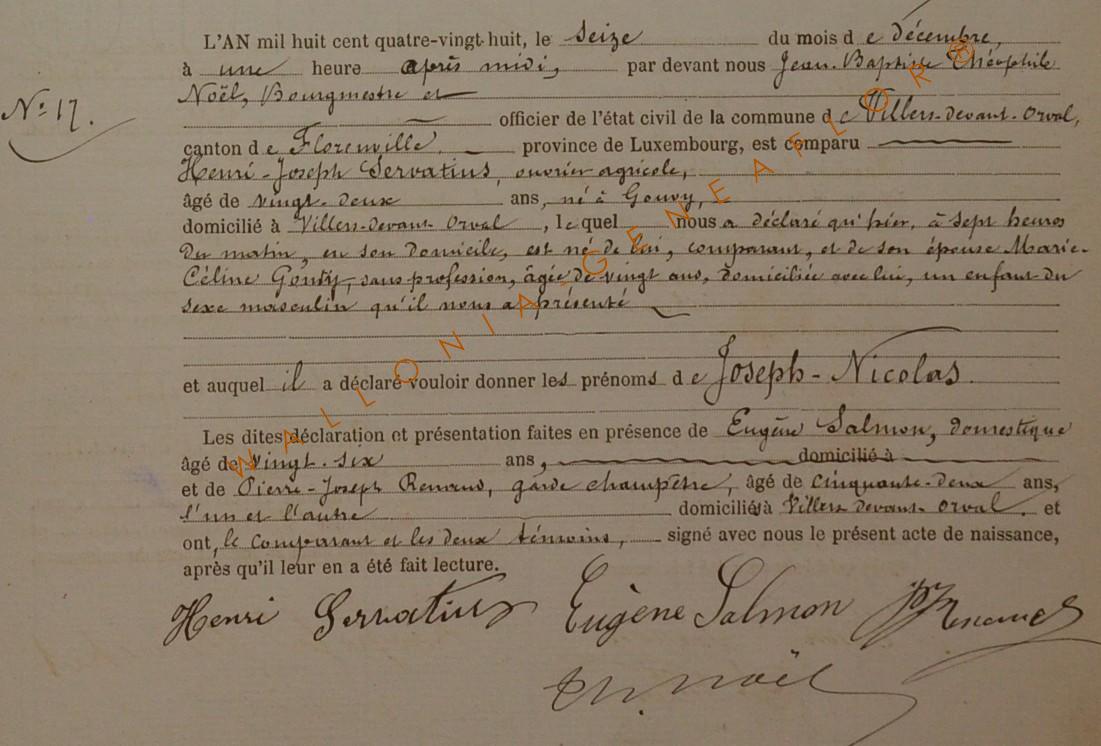 L'AN mil huit cent quatre-vingt-huit, le seize du mois de décembre,
à une heure après midi, par devant nous Jean-Baptiste Théophile
Noël, Bourgmestre et
N° 17.
officier de l'état civil de la commune de Villers-devant-Orval,
canton de Florenville. province de Luxembourg, est comparu
Henri-Joseph Servatius, ouvrier agricole,
âgé de vingt-deux ans, né à Gouvy,
domicilié à Villers-devant-Orval, lequel nous a déclaré qu'hier, à sept heures
du matin, en son domicile, est né de lui, comparant, et de son épouse Marie-
Céline, sans profession, âgée de vingt ans, domiciliée avec lui, un enfant du
sexe masculin qu'il nous a présenté
et auquel il a déclaré vouloir donner les prénoms de Joseph-Nicolas.
Les dites déclaration et présentation faites en présence de Eugène Salmon, domestique
âgé de vingt-six ans, domicilié à
et de Pierre-Joseph, garde champêtre, âgé de cinquante-deux ans,
l'un et l'autre domiciliés à Villers-devant-Orval. et
ont, le comparant et les deux témoins, signé avec nous le présent acte de naissance,
après qu'il leur en a été fait lecture.
Henri Servatius Eugène Salmon
Th. Noël
WALLONIA-GENEAFLOR®